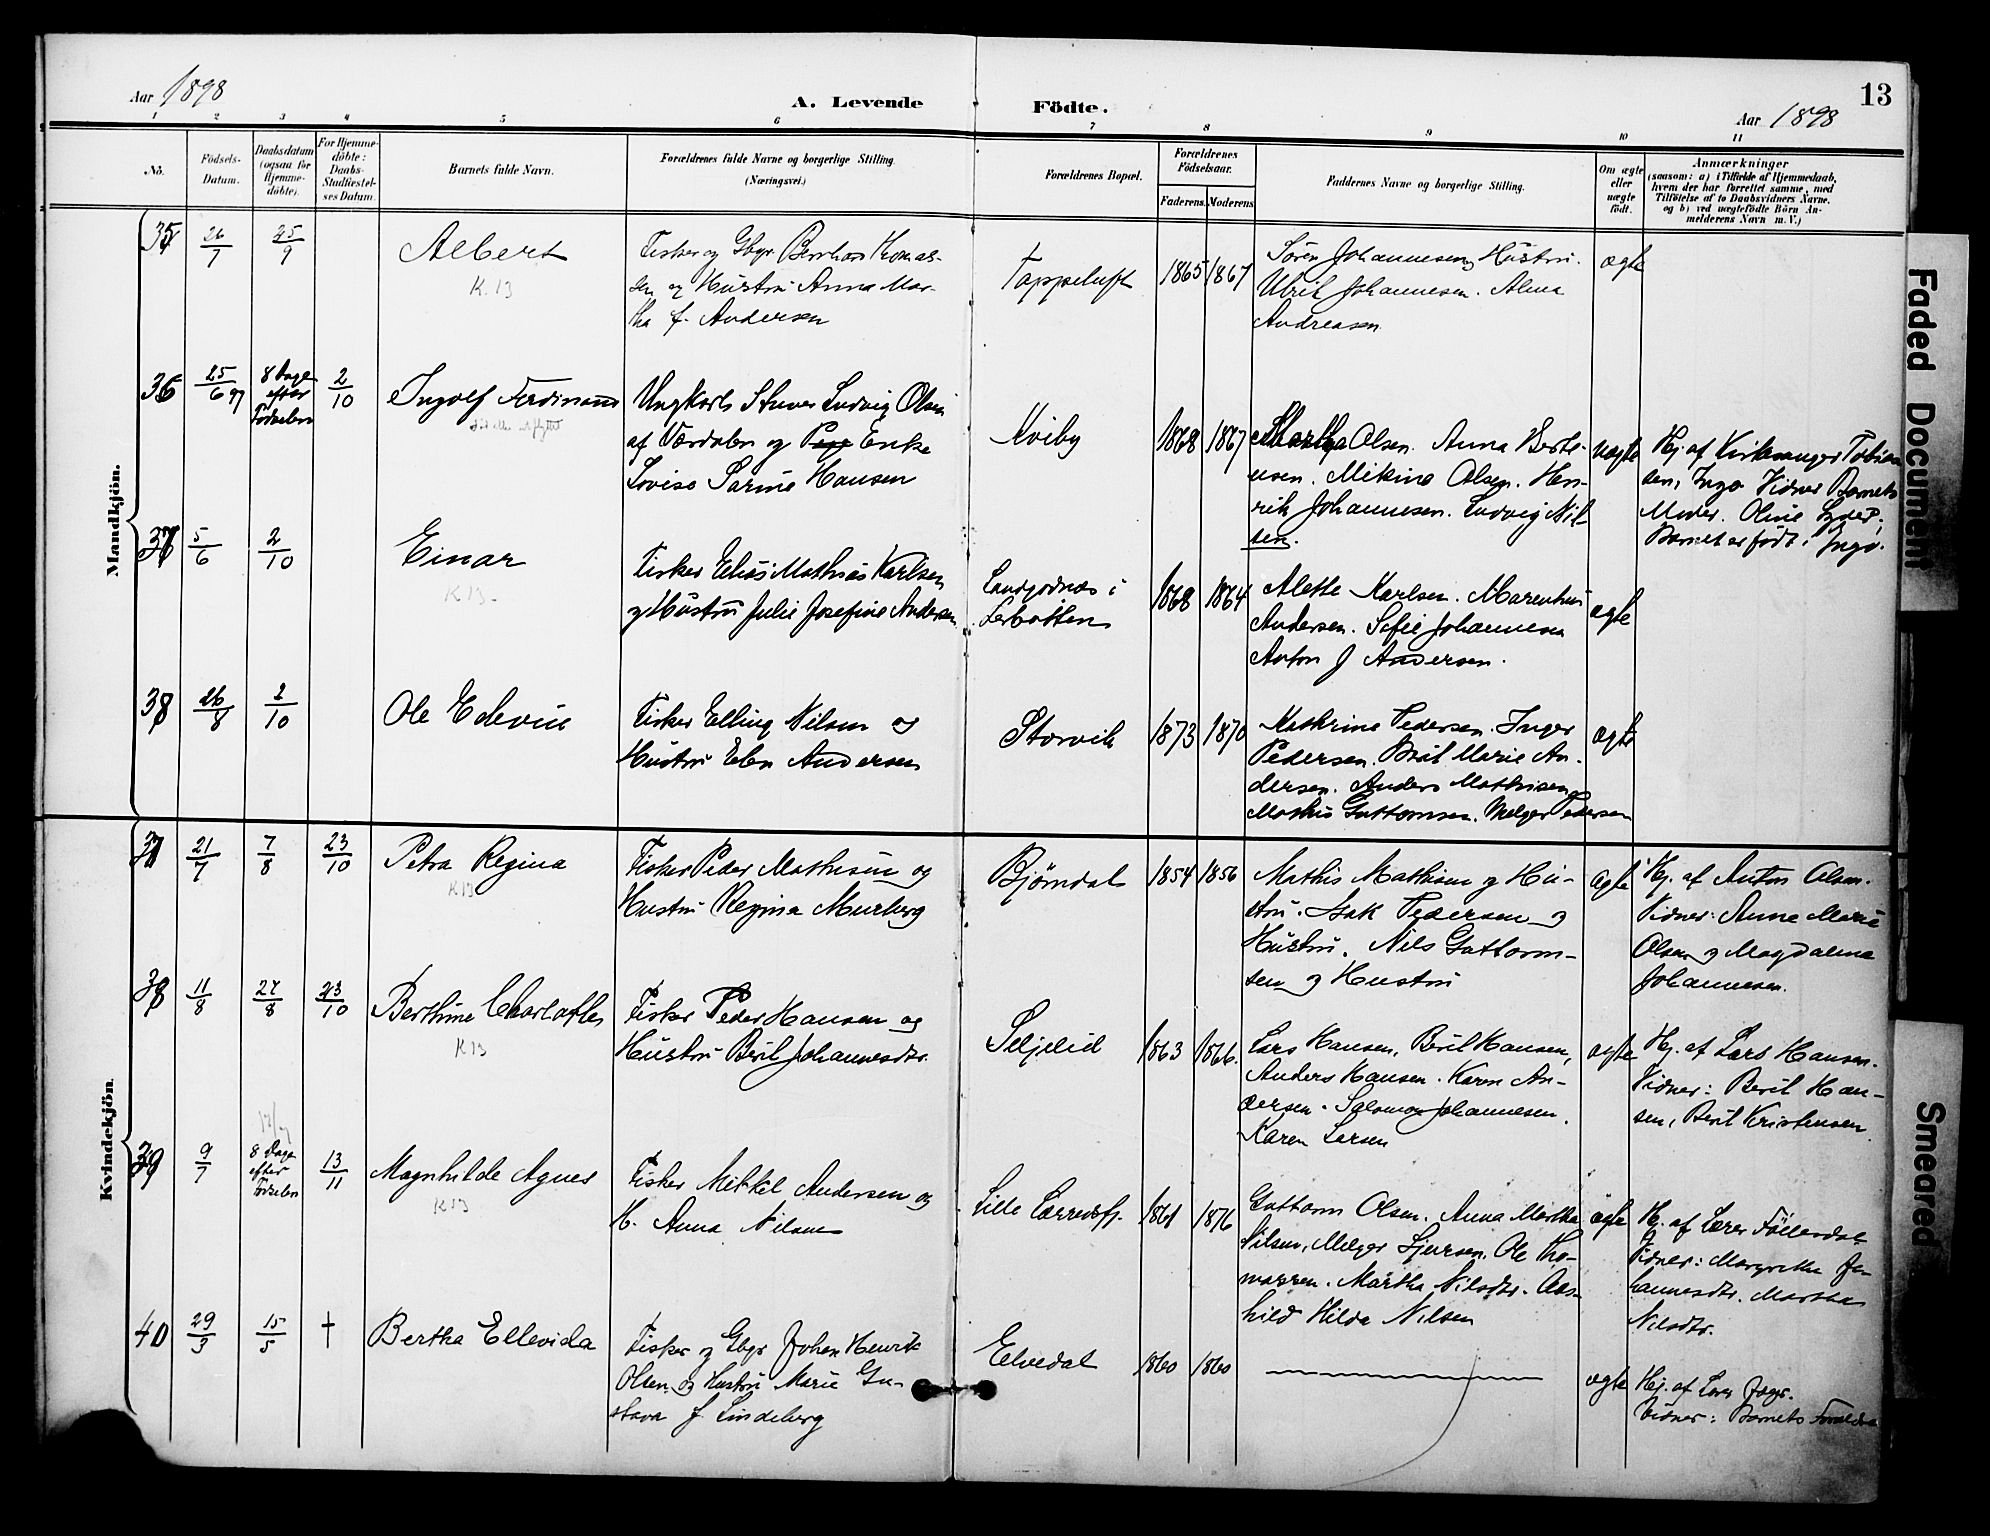 Aar 1898
A. Levende Födte.
Aar 1898
13
1 2 3 4 5 6 7 8 9 10 11
No.
Födsels-
Datum.
Daabsdatum
(ogsaa for
Hjemme-
döbte).
For Hjemme-
döbte:
Daabs-
Stadfæstel-
ses Datum.
Barnets fulde Navn.
Forældrenes fulde Navne og borgerlige Stilling.
(Næringsvei.)
Forældrenes Bopæl.
Forældrenes
Födselsaar.
Faderens. Moderens.
Faddernes Navne og borgerlige Stilling.
Om ægte
eller
uægte
födt.
Anmærkninger
(saasom: a) i Tilfælde af Hjemmedaab,
hvem der har forrettet samme, med
Tilföielse af to Daabsvidners Navne,
og b) ved uægtefödte Börn An-
melderens Navn m. V.)
Mandkjön.
35 26/7 25/9
Albert
K.13
Fisker og Gbgr Bernhard Thomas-
sen og Hustru Anna Mar-
tha f. Andersen
Tappeluft
1865 1867
Sören Johannesen og Hustru.
Ulrik Johannesen. Alma
Andreasen
ægte
36 25/6 97
8 Dage
efter
Födselen
2/10
Ingolf Ferdinand
Ungkarls Stuver Ludvig Olsen
af Værdalen og Pige Enke
Lovise Sarine Hansen
Kviby
1868 1867
Martha Olsen. Anna Bert-
usen. Mekine Olsen. Hen-
rik Johannesen. Ludvig Nil-
sen.
uægte
Hj. af Kirkesanger Tobias-
sen, Ingø Vidner Barnets
Moder. Oline
Barnet er født i Ingø.
37 5/6 2/10
Einar
K13-
Fisker Elias Mathias Karlsen
og Hustru Julie Josefine Andersen
Landgodnæs i
Lerbotten
1868 1864
Alette Karlsen. Marenthus
Andersen. Sofie Johannesen
Anton J Andersen.
ægte
38 26/8 2/10
Ole Edevin
Fisker Elling Nilsen og
Hustru Elen Andersen
Storvik
1873 1870
Kathrine Pedersen. Inger
Pedersen. Berit Marie An-
dersen. Anders Mathisen
Mathis Guttormsen. Melger Pedersen
ægte
Kvindekjön.
37 21/7 7/8 23/10
Petra Regina
K13
Fisker Peder Mathisen og
Hustru Regina Murberg
Bjørndal
1854 1856
Mathis Mathisen og Hu-
stru. Isak Pedersen og
Hustru. Nils Guttorm-
sen og Hustru
ægte
Hj. af Anton Olsen.
Vidner: Anne Marie
Olsen og Magdalena
Johannesen.
38 11/8 27/8 23/10
Berthine Charlotte
K13
Fisker Peder Hansen og
Hustru Berit Johannesdtr.
Seljelid
1863 1866.
Lars Hansen, Berit Hansen,
Anders Hansen. Karen An-
dersen. Salomon Johannesen.
Karen Larsen
ægte
Hj. af Lars Hansen.
Vidner: Berit Han-
sen, Berit Kristensen
39 9/7
8 Dage
efter
Födselen
13/11
Magnhilde Agnes
K13
Fisker Mikkel Andersen og
H. Anna Nilsen
Lille Lerresfj.
1861 1876
Guttorm Olsen. Anna Martha
Nilsen, Melger Sjursen, Ole Tho-
massen. Martha Nilsdtr. Aas-
hild Hilda Nilsen
ægte
Hj. af Lærer Föllesdal
Vidner: Margrethe Jo-
hannesdtr. Martha
Nilsdtr.
40 29/3 15/5 †
Bertha Ellevida
Fisker og Gbgr Johan Henrik
Olsen og Hustru Marie Gu-
stava f. Lindeberg
Elvedal
1860 1860
ægte
Hj. af Lærer
Vidner: Barnets Forældre
Faded Document
Smeared